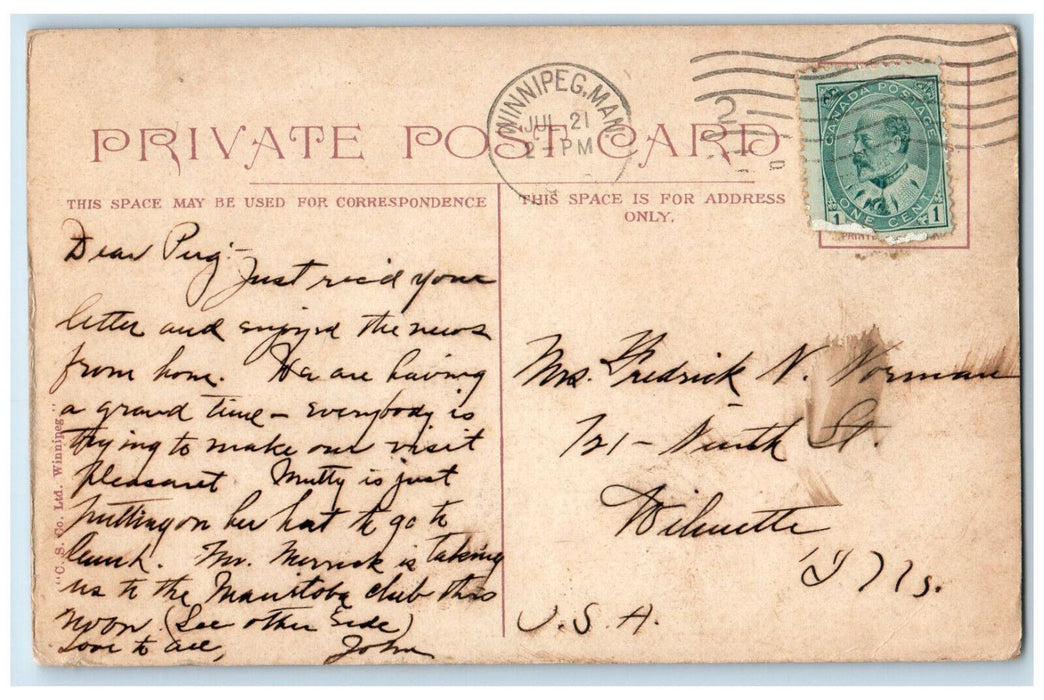 WINNIPEG, MAN.
JUL 21
2 - PM
2
CANADA POSTAGE
ONE CENT
1 1
PRIVATE POST CARD
THIS SPACE MAY BE USED FOR CORRESPONDENCE
THIS SPACE IS FOR ADDRESS
ONLY.
Dear Pug:-
Just rec'd your
letter and enjoyed the news
from home. We are having
a grand time - everybody is
trying to make our visit
pleasant. Mutty is just
putting on her hat to go to
lunch. Mr. Merrick is taking
us to the Manitoba club this
noon. (See other side)
Love to all,
John
"C. S. Co. Ltd. Winnipeg"
Mrs. Fredrick N. Norman
721 - Ninth St.
Wilmette
Ills.
U.S.A.